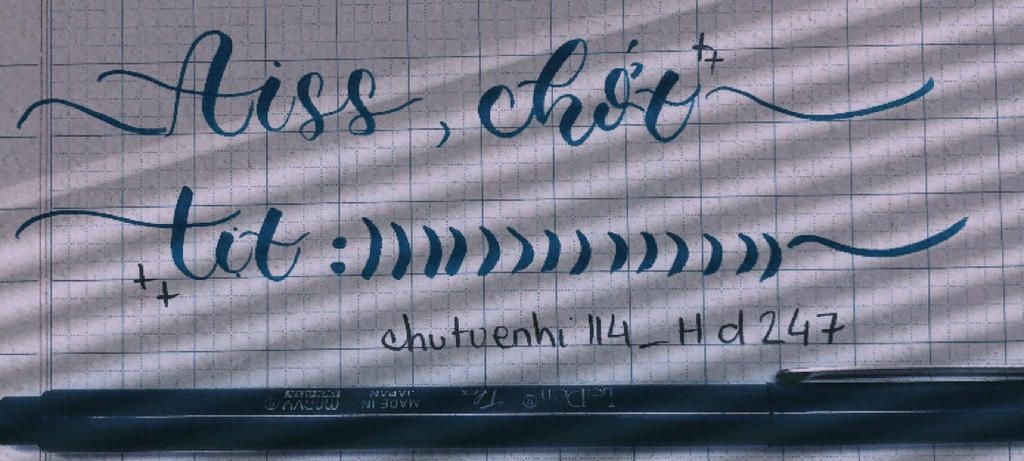 Aiss, chớt
tịt :))))))))))))))
chutuenhi 114_Hd247
LePen Flex MADE IN JAPAN marvy